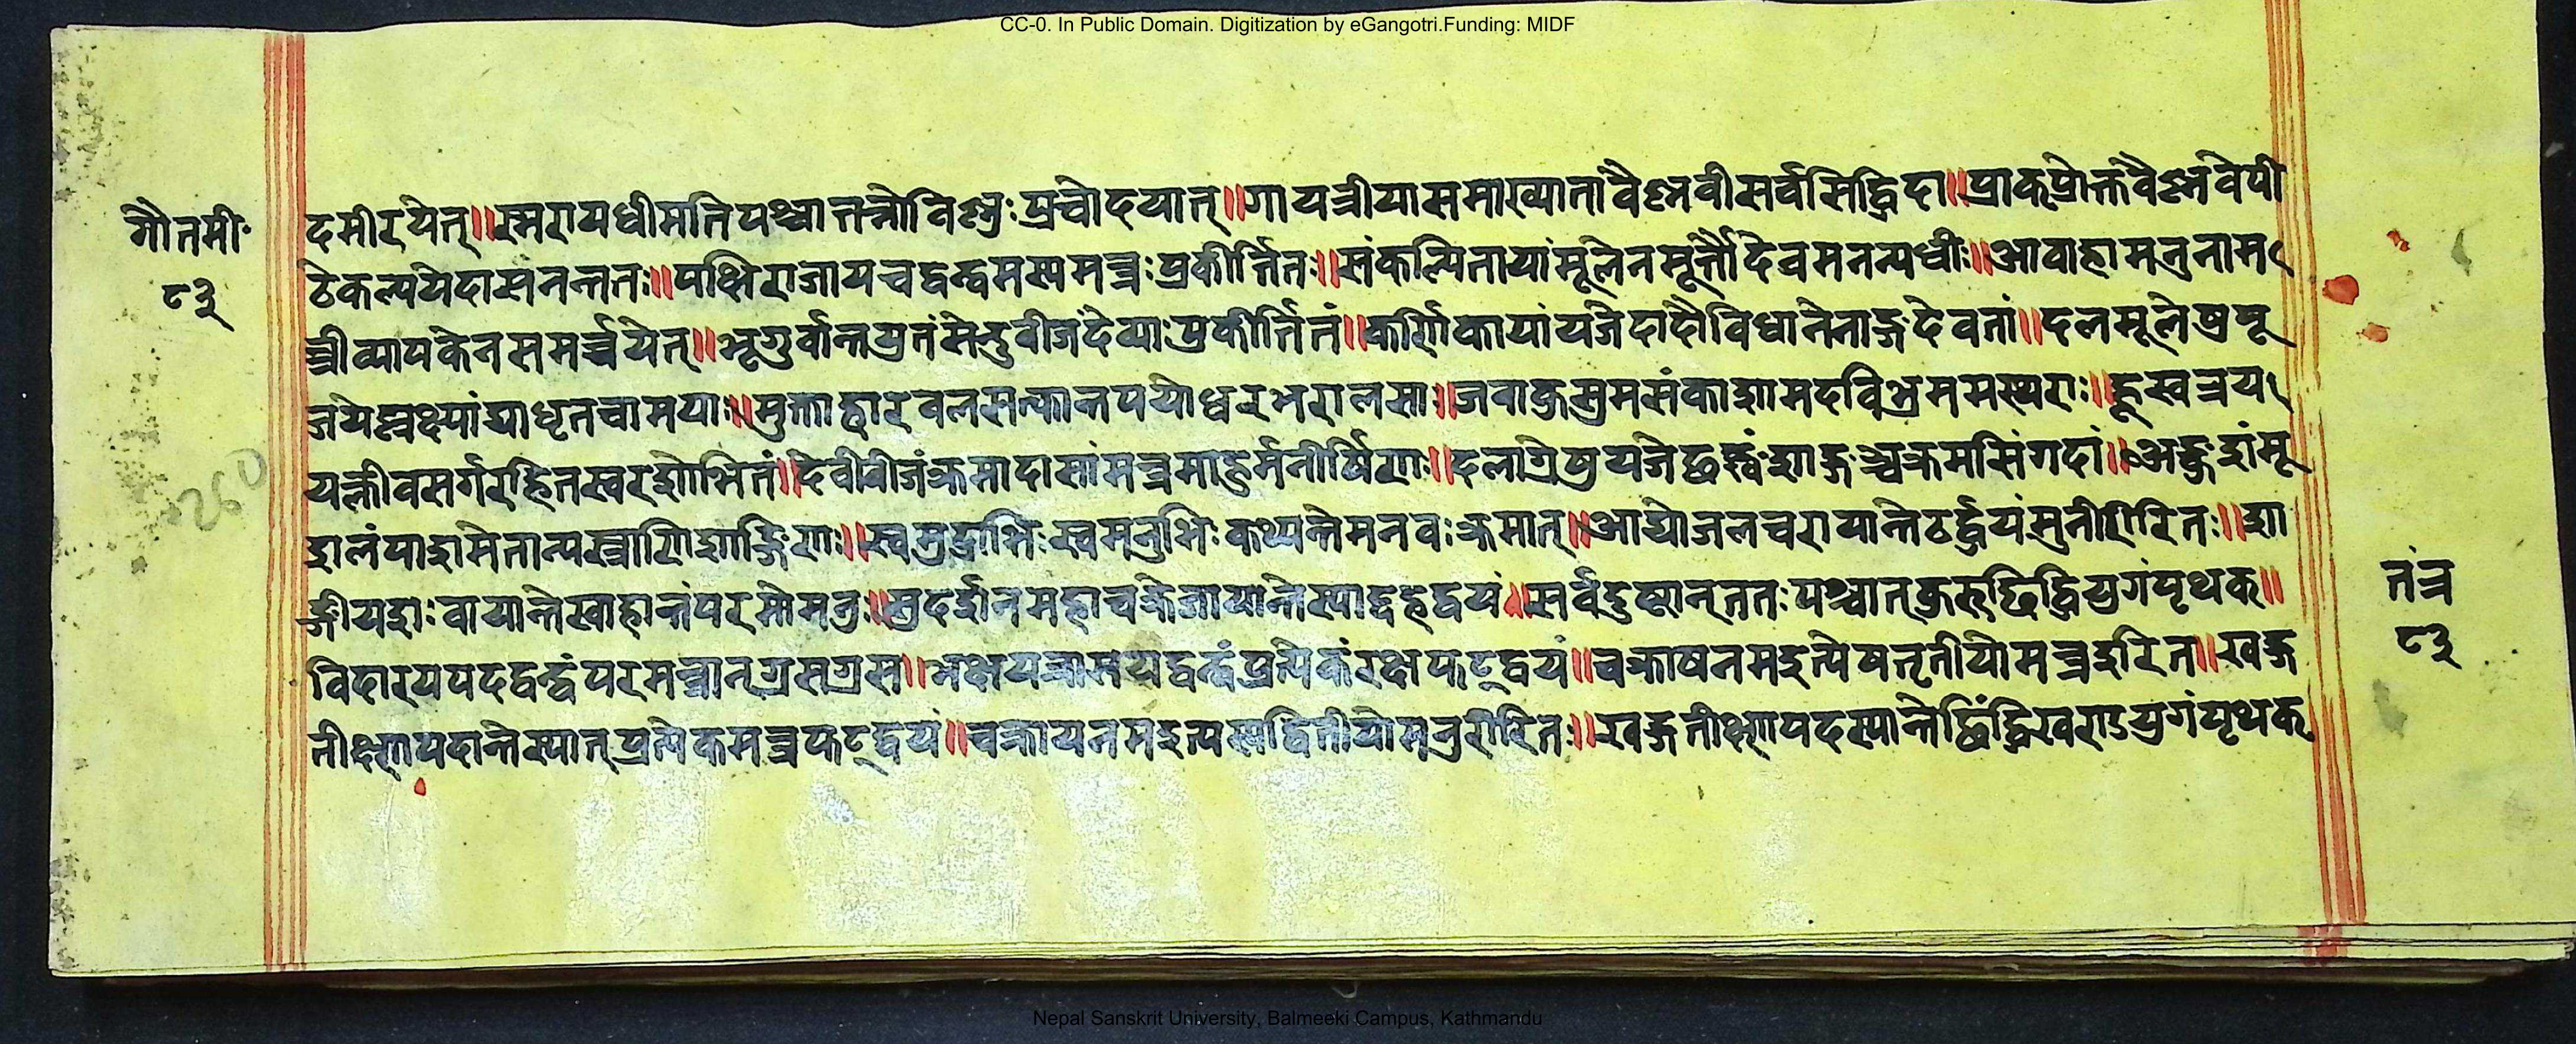 CC-0. In Public Domain. Digitization by eGangotri.Funding: MIDF
गौतमी॰
८३
दमीरयेत्॥स्मरायधीमतिपश्चात्तन्नोविश्नुःप्रचोदयात्॥गायत्रीयासमाख्यातांवैश्नवीसर्वसिद्धिदा॥प्राक्प्रोक्तवैश्नवेपी
ठेकल्पयेदासनन्ततः॥पक्षिराजायचद्वन्द्वमस्यमन्त्रःप्रकीर्त्तितः॥संकल्पितायांमूलेनमूर्त्तौदेवमनन्यधीः॥आवाह्यमनुनाम
न्त्रीव्यापकेनसमर्च्चयेत्॥भृगुर्वान्तयुतंसेन्दुबीजंदेव्याःप्रकीर्त्तितं॥कर्णिकायांयजेदादौविधानेनाङ्गदेवतां॥दलमूलेषुपू
जयेल्लक्ष्म्यांद्याधृतचामयाः॥मुक्ताहारवलसत्कान्तपयोधरभरालसाः॥जवाकुसुमसंकाशामदविभ्रममस्थराः॥
यत्क्लीवसर्गरहितस्वरशोभितं॥देवीबीजंक्रमादासांमन्त्रमाहुर्मनीषिणः॥दलाग्रेषुयजेच्छङ्खंशाङ्गञ्चक्रमसिंगदां॥अङ्कुशंमू
शलंपाशमेतान्यस्त्राणिशार्ङ्गिणः॥स्वमुद्राभिःस्वमनुभिःकथ्यन्तेमनवःक्रमात्॥आद्योजलचरायान्तेठर्द्वयंमुनीरीरितः॥शा
र्ङ्गीयशःवायान्तेस्वाहान्तंपरमोमनुः॥सुदर्शनमहाचक्रेजायान्तेस्याद्दहद्वयं॥सर्वदुष्टान्ततःपश्चात्कुरुछिन्द्धियुगंपृथक्॥
विदारयपदद्वन्द्वंपरमन्त्रान्ग्रसग्रस॥भक्षयत्रासयद्वन्द्वंप्रत्येकंरक्षफट्द्वयं॥चक्रायनमइत्येषतृतीयोमन्त्रइरित॥खड्ग
तीक्ष्णपदान्तेस्यात्प्रत्येकमन्त्रफट्द्वयं॥चक्रायनमइत्यस्यद्वितीयोमनुरीरितः॥खड्गतीक्ष्णपदस्यान्तेछिंद्धिखराऽयुगंपृथक्
तंत्र
८३
260
Nepal Sanskrit University, Balmeeki Campus, Kathmandu